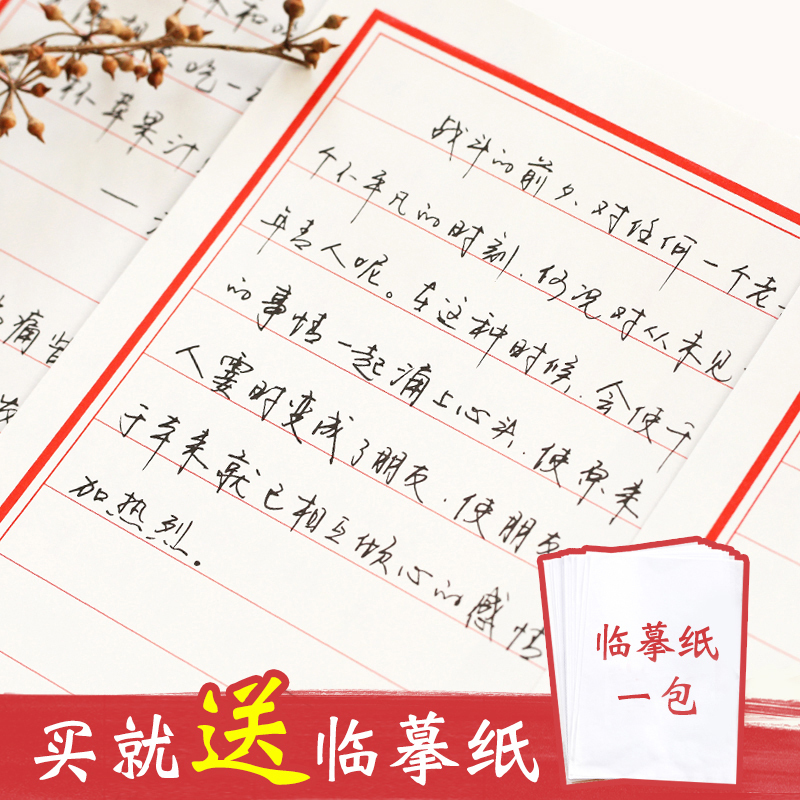 吃一
杯苹果汁
一
痛苦
战斗的前夕、对任何一个老
个不平凡的时刻,何况对从未见
年青人呢。在这种时候,会使千
的事情一起涌上心头,使原来
人霎时变成了朋友,使朋友
于本来就已相互倾心的感情
加热烈。
临摹纸
一包
买就送临摹纸